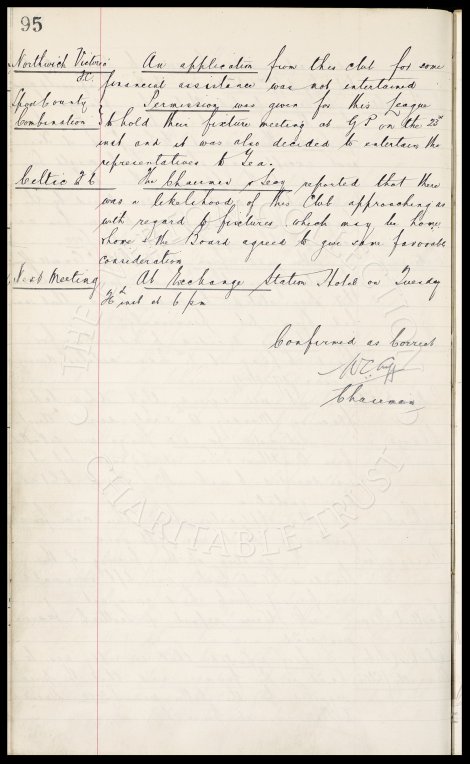 95
Northwich Victoria An application from this club for some
F.C. financial assistance was not entertained
Permission was given for this League
Combination to hold their fixture meeting at G P on the 23rd
inst and it was also decided to entertain the
representatives to Tea.
Celtic F C The Chairman & Secy reported that there
was a likelihood of this Club approaching us
with regard to fixtures which may be home
& home & the Board agreed to give same favorable
consideration
Next Meeting At Exchange Station Hotel on Tuesday
inst at 6 pm
Confirmed as Correct
Chairman
THE
CHARITABLE TRUST